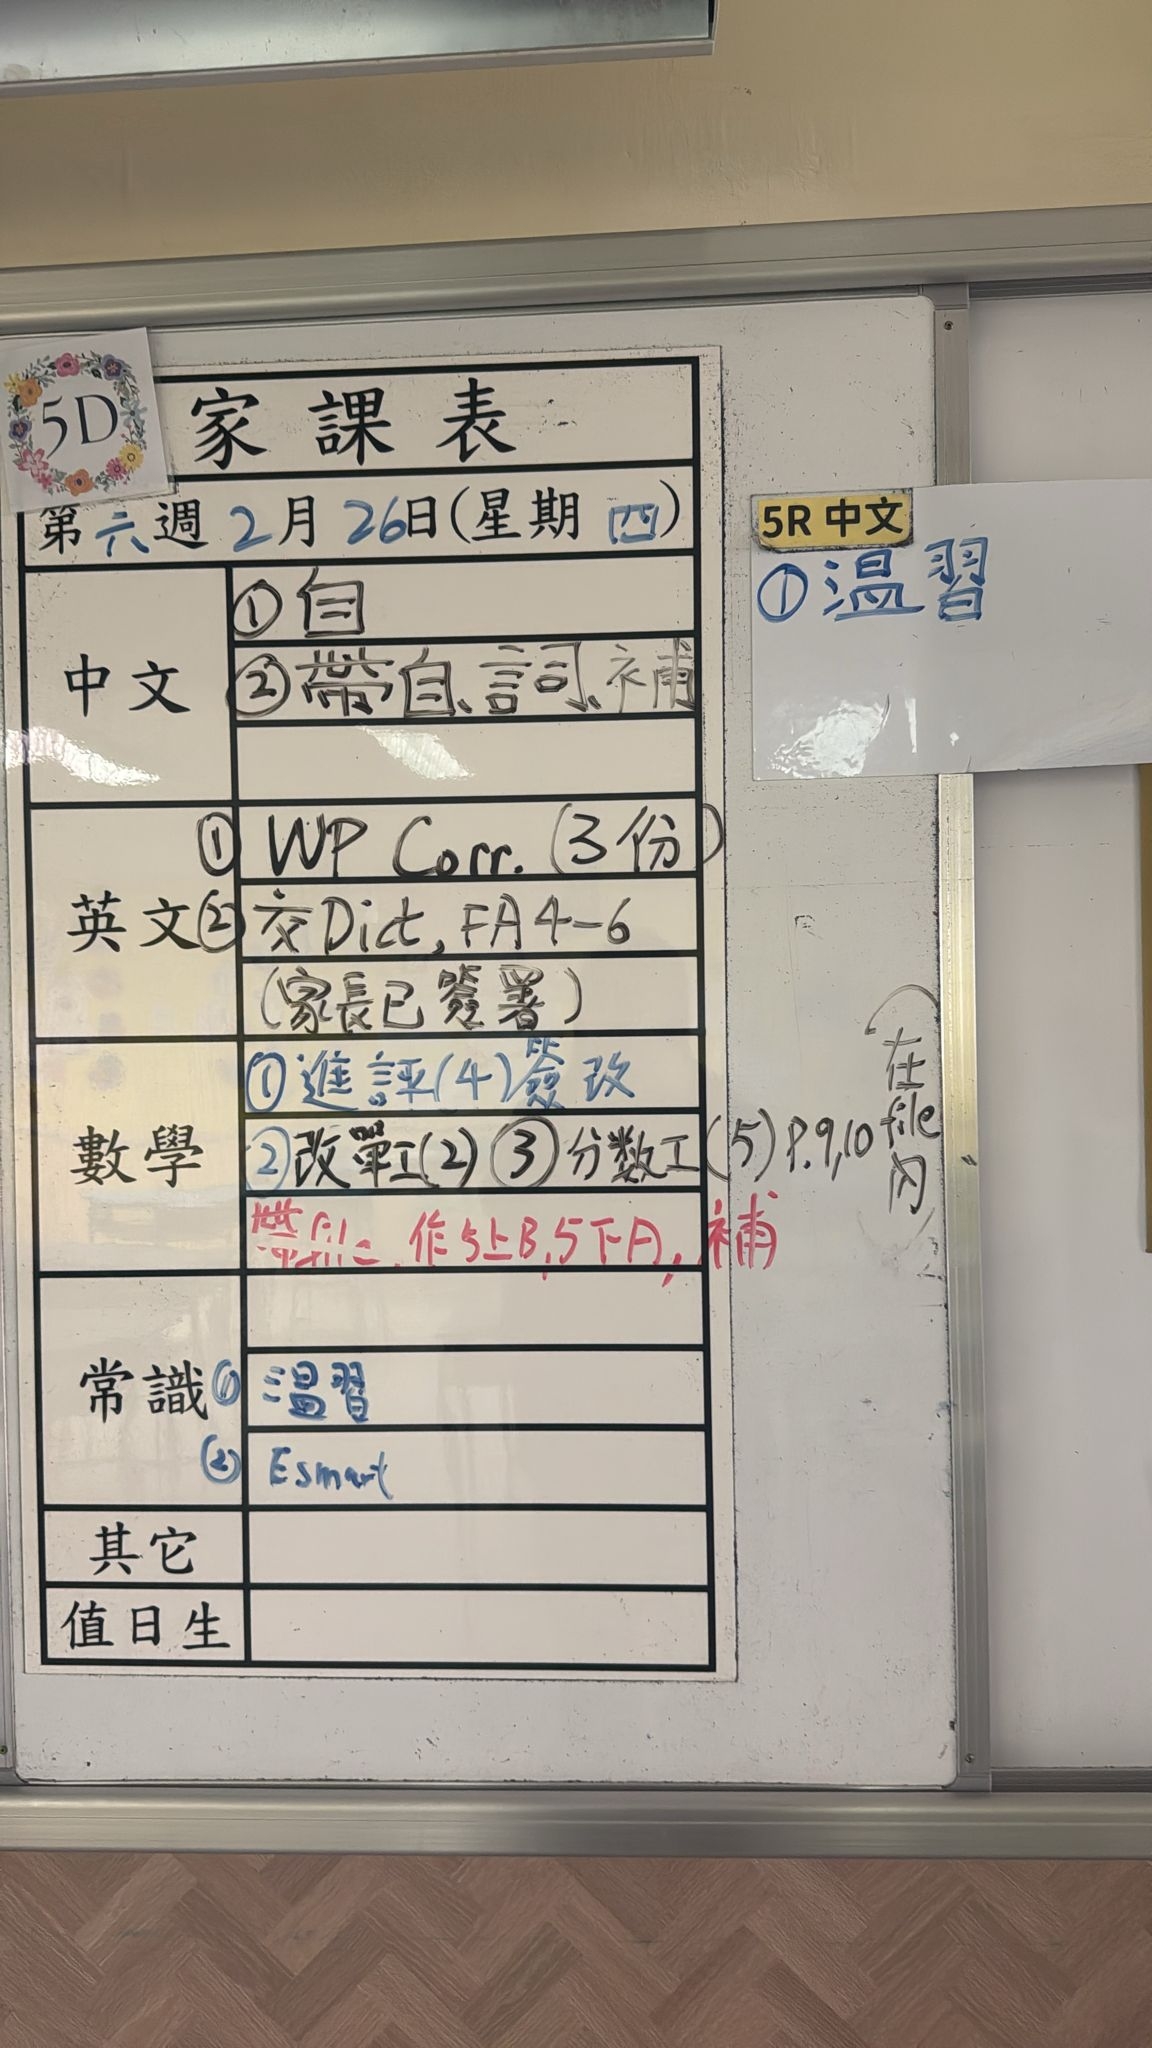 5D
家課表
第六週 2月26日(星期四)
5R 中文
①溫習
中文
①自
②帶自、詞、補
英文
① WP Corr. (3份)
② 交Dict, FA4-6
(家長已簽署)
數學
①進評(4)簽改
②改單工(2) ③分数工(5) P.9,10
(在file內)
帶file、作5上B,5下A, 補
常識
① 溫習
② Esmart
其它
值日生